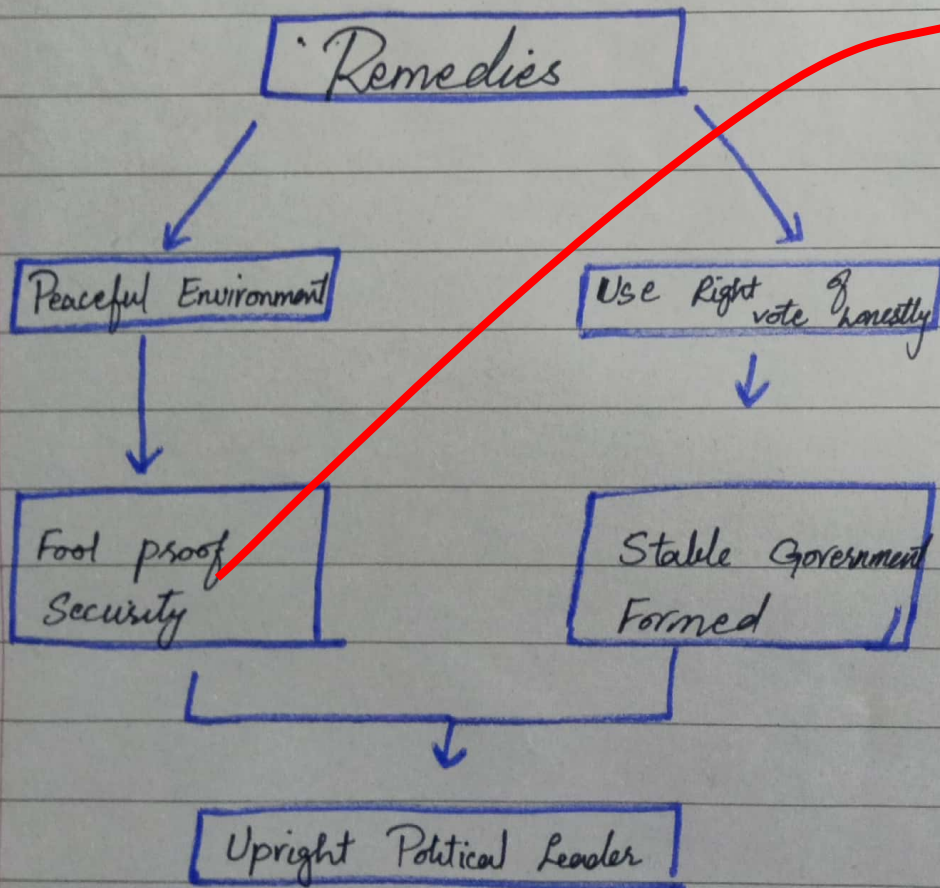 Remedies
Peaceful Environment
Use Right of
vote honestly
Fool proof
Security
Stable Government
Formed
Upright Political Leader